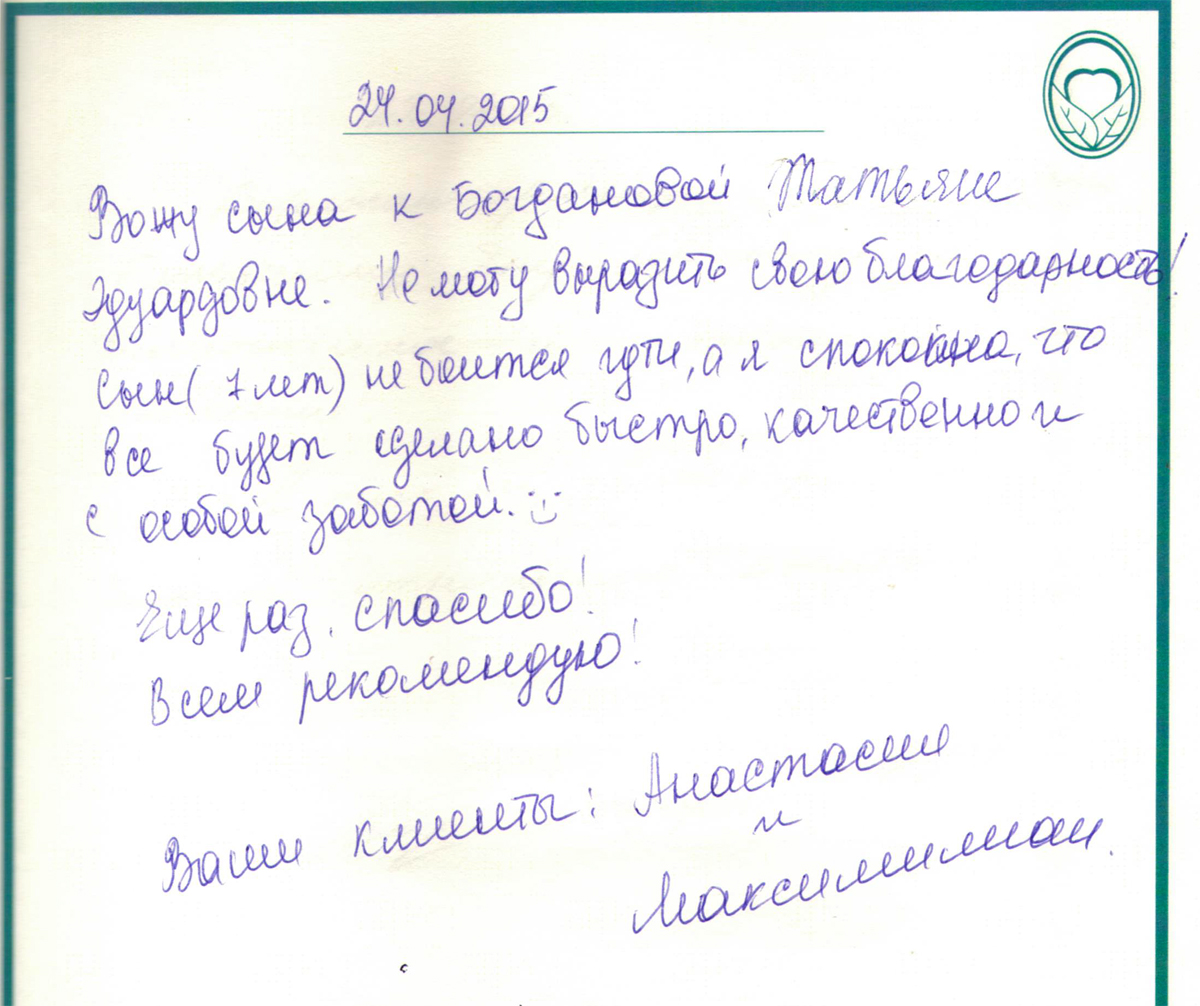 24.04.2015
Вожу сына к Богдановой Татьяне
Эдуардовне. Не могу выразить свою благодарность!
Сын (7 лет) не боится идти, а я спокойна, что
все будет сделано быстро, качественно и
с особой заботой. :)
Еще раз, спасибо!
Всем рекомендую!
Ваши клиенты: Анастасия
и
Максимилиан.